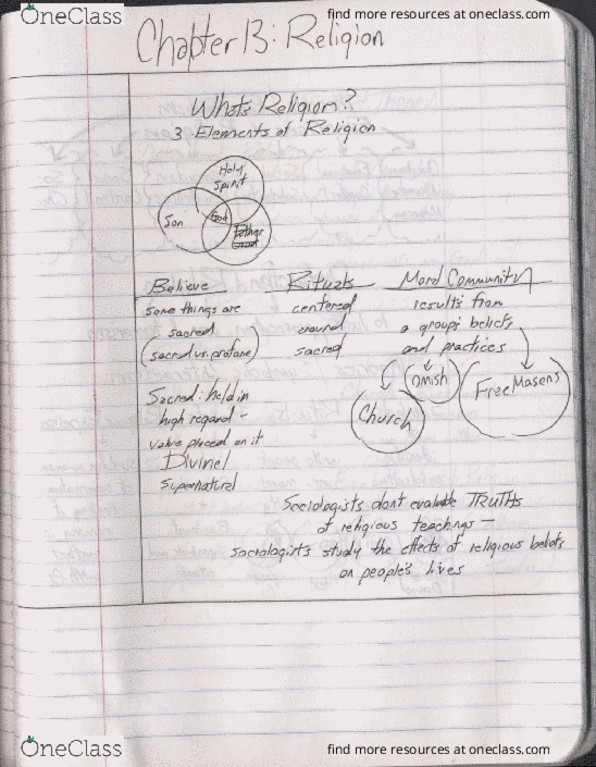 OneClass
find more resources at oneclass.com
Chapter 13: Religion
Whats Religion?
3 Elements of Religion
Holy
Spirit
Son
God
Father
Believe
some things are
sacred
(sacred vs. profane)
Sacred: held in
high regard -
value placed on it
Divine/
supernatural
Rituals
centered
around
sacred
Moral Community
results from
a group's beliefs
and practices
Church
Omish
Free Masens
Sociologists dont evaluate TRUTHS
of religious teachings —
sociologists study the effects of religious beliefs
on people's lives
OneClass
find more resources at oneclass.com